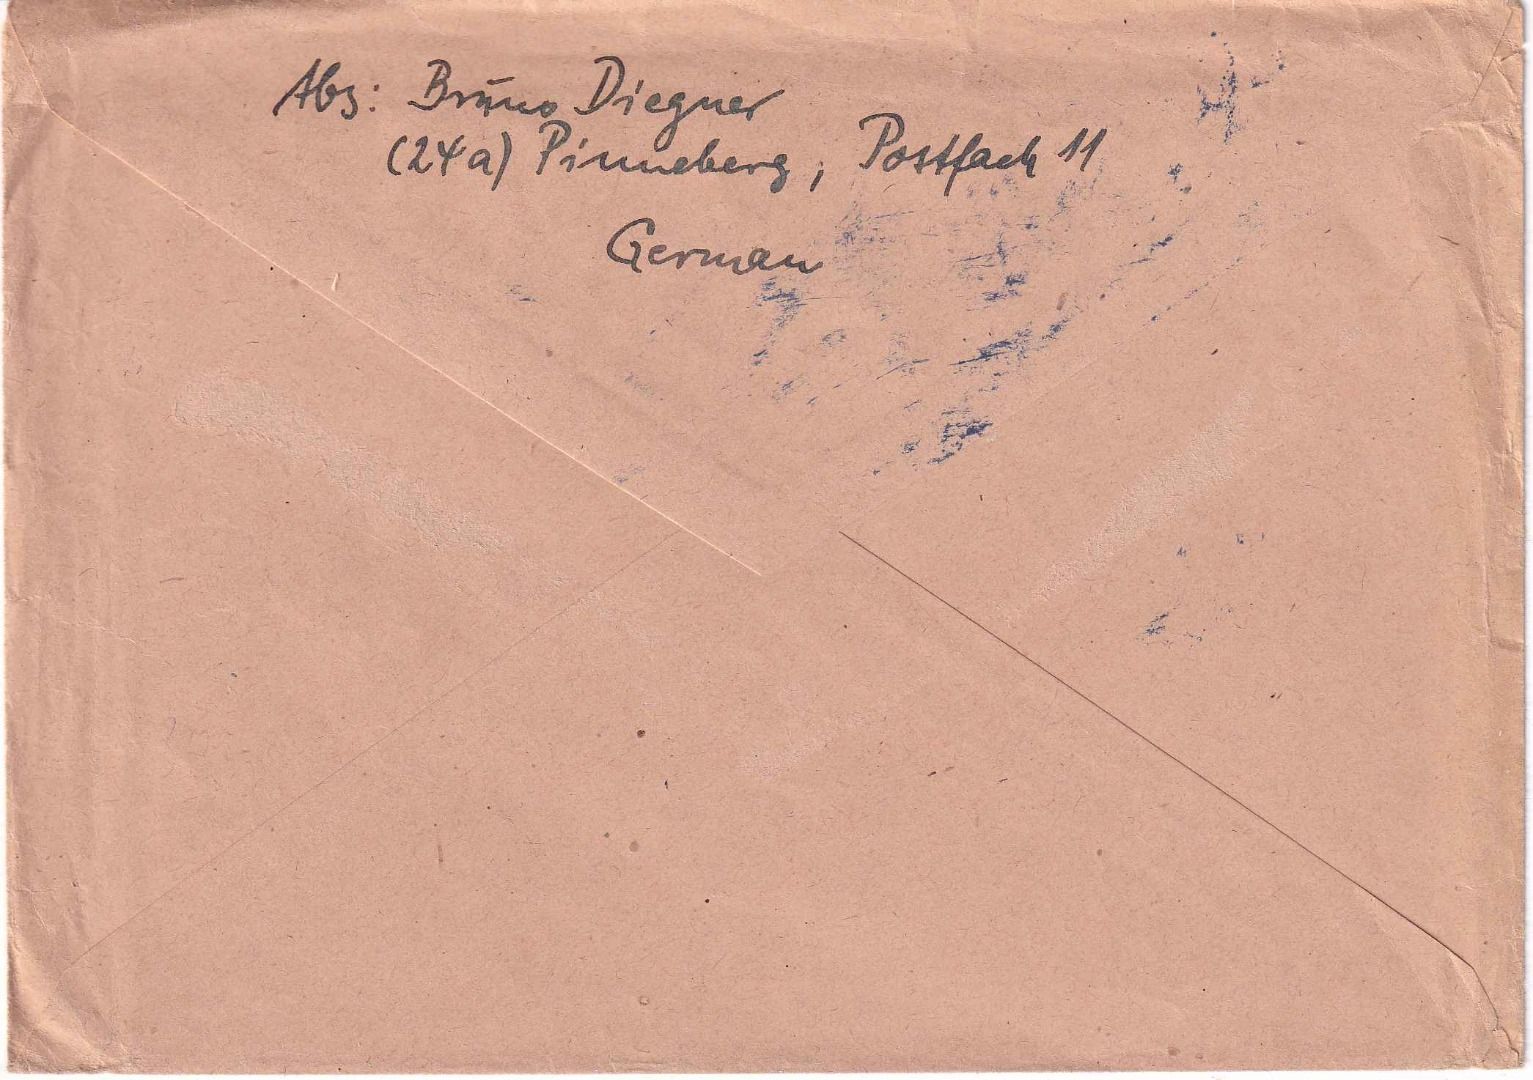 Abs: Bruno Diegner
(24a) Pinneberg, Postfach 11
German